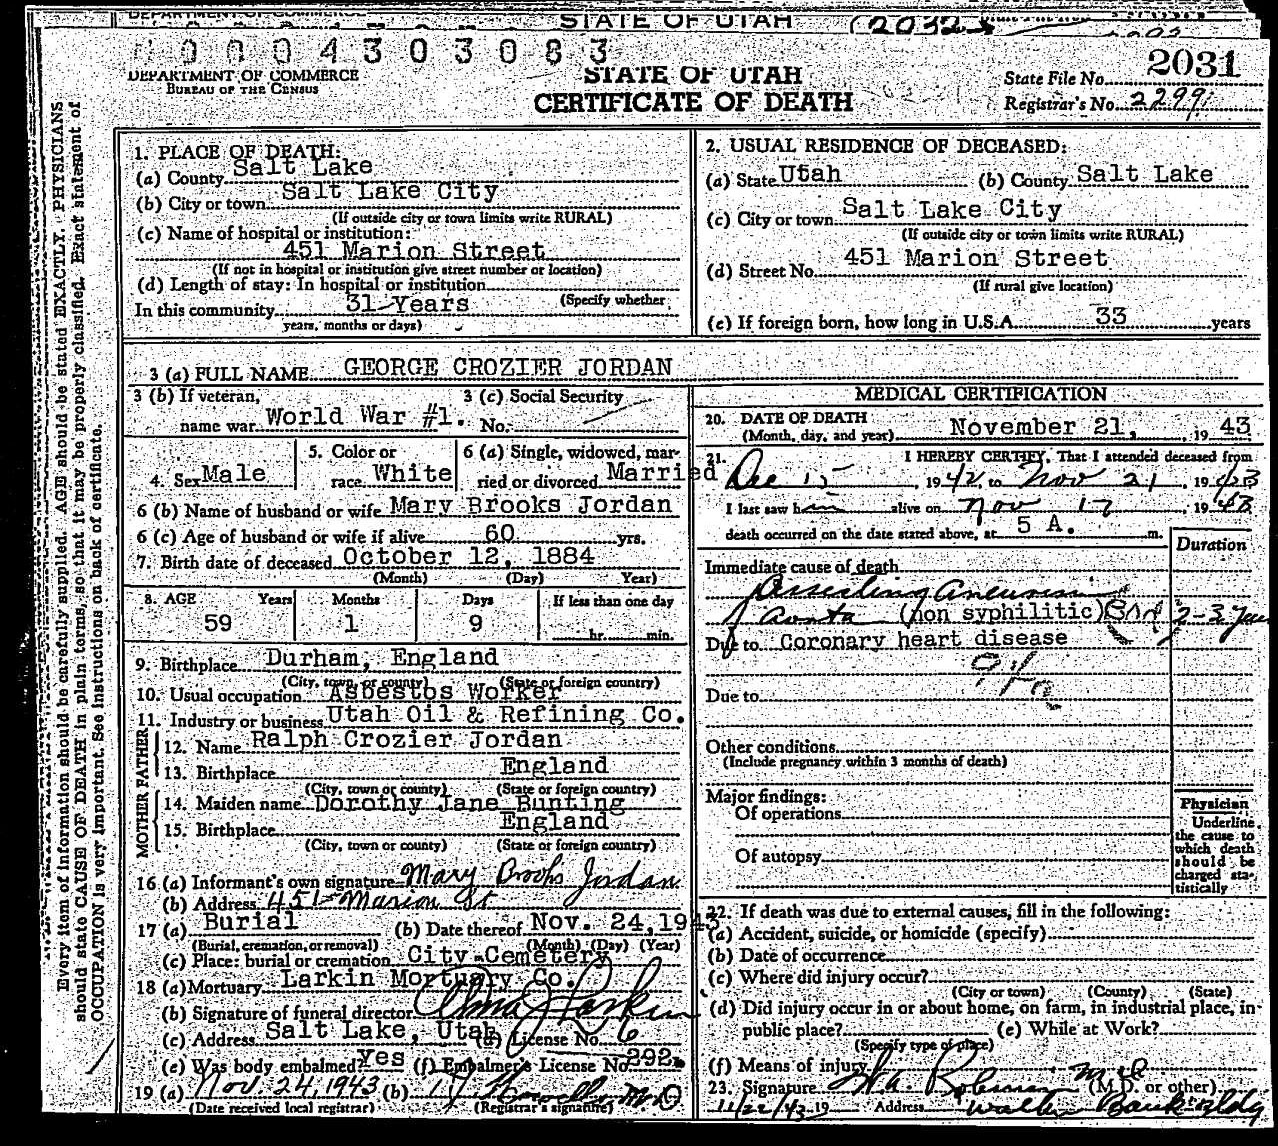 DEPARTMENT OF COMMERCE
STATE OF UTAH
2032
0004303083
DEPARTMENT OF COMMERCE
BUREAU OF THE CENSUS
STATE OF UTAH
CERTIFICATE OF DEATH
State File No. 2031
Registrar's No. 2299
Every item of information should be carefully supplied. AGE should be stated EXACTLY. PHYSICIANS
should state CAUSE OF DEATH in plain terms, so that it may be properly classified. Exact statement of
OCCUPATION is very important. See instructions on back of certificate.
1. PLACE OF DEATH:
(a) County Salt Lake
(b) City or town Salt Lake City
(If outside city or town limits write RURAL)
(c) Name of hospital or institution:
451 Marion Street
(If not in hospital or institution give street number or location)
(d) Length of stay: In hospital or institution
(Specify whether
In this community 31 Years
years, months or days)
2. USUAL RESIDENCE OF DECEASED:
(a) State Utah (b) County Salt Lake
(c) City or town Salt Lake City
(If outside city or town limits write RURAL)
(d) Street No. 451 Marion Street
(If rural give location)
(e) If foreign born, how long in U.S.A. 33 years
3 (a) FULL NAME GEORGE CROZIER JORDAN
3 (b) If veteran,
name war World War #1.
3 (c) Social Security
No.
4. Sex Male
5. Color or
race White
6 (a) Single, widowed, mar-
ried or divorced Married
6 (b) Name of husband or wife Mary Brooks Jordan
6 (c) Age of husband or wife if alive 60 yrs.
7. Birth date of deceased October 12, 1884
(Month) (Day) Year)
8. AGE Years Months Days If less than one day
59 1 9 hr. min.
9. Birthplace Durham, England
(City, town, or county) (State or foreign country)
10. Usual occupation Asbestos Worker
11. Industry or business Utah Oil & Refining Co.
FATHER
12. Name Ralph Crozier Jordan
13. Birthplace England
(City, town or county) (State or foreign country)
MOTHER
14. Maiden name Dorothy Jane Bunting
15. Birthplace England
(City, town or county) (State or foreign country)
16 (a) Informant's own signature Mary Brooks Jordan
(b) Address 451 Marion St
17 (a) Burial (b) Date thereof Nov. 24, 1943
(Burial, cremation, or removal) (Month) (Day) (Year)
(c) Place: burial or cremation City Cemetery
18 (a) Mortuary Larkin Mortuary Co.
(b) Signature of funeral director Alma J Larkin
(c) Address Salt Lake, Utah (d) License No. 6
(e) Was body embalmed? yes (f) Embalmer's License No. 292
19 (a) Nov. 24, 1943 (b) M.D
(Date received local registrar) (Registrar's signature)
MEDICAL CERTIFICATION
20. DATE OF DEATH
(Month, day, and year) November 21, 19 43
21. I HEREBY CERTIFY, That I attended deceased from
Dec 15, 19 42 to Nov 21, 19 43
I last saw him alive on Nov 17 19 43
death occurred on the date stated above, at 5 A. m.
Duration
Immediate cause of death
Dissecting Aneurism
of Aorta (non syphilitic) 2-3
Due to Coronary heart disease
Due to
Other conditions
(Include pregnancy within 3 months of death)
Major findings:
Of operations
Of autopsy
Physician
Underline
the cause to
which death
should be
charged sta-
tistically
22. If death was due to external causes, fill in the following:
(a) Accident, suicide, or homicide (specify)
(b) Date of occurrence
(c) Where did injury occur?
(City or town) (County) (State)
(d) Did injury occur in or about home, on farm, in industrial place, in
public place? (e) While at Work?
(Specify type of place)
(f) Means of injury
23. Signature M D (M.D. or other)
11/22/43 19 Address Walker Bank Bldg